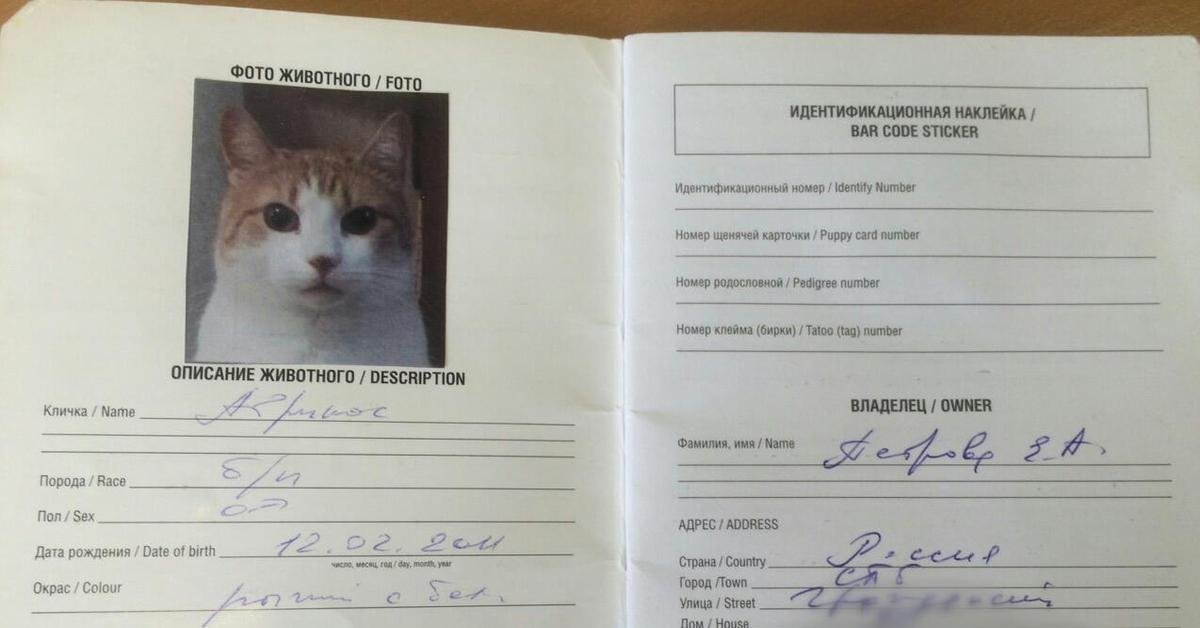 ФОТО ЖИВОТНОГО / FOTO
ОПИСАНИЕ ЖИВОТНОГО / DESCRIPTION
Кличка / Name
Порода / Race б/п
Пол / Sex
Дата рождения / Date of birth 12.02.2011
число, месяц, год / day, month, year
Окрас / Colour рыжий с бел.
ИДЕНТИФИКАЦИОННАЯ НАКЛЕЙКА /
BAR CODE STICKER
Идентификационный номер / Identify Number
Номер щенячей карточки / Puppy card number
Номер родословной / Pedigree number
Номер клейма (бирки) / Tatoo (tag) number
ВЛАДЕЛЕЦ / OWNER
Фамилия, имя / Name Петрова Е.А.
АДРЕС / ADDRESS
Страна / Country Россия
Город /Town СПб
Улица / Street
Дом / House